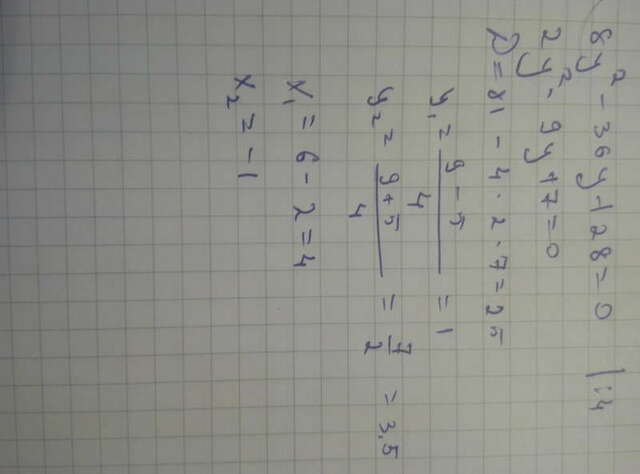 8y² - 36y + 28 = 0 | :4
2y² - 9y + 7 = 0
D = 81 - 4 · 2 · 7 = 25
y₁ = (9 - 5)/4 = 1
y₂ = (9 + 5)/4 = 7/2 = 3,5
x₁ = 6 - 2 = 4
x₂ = -1